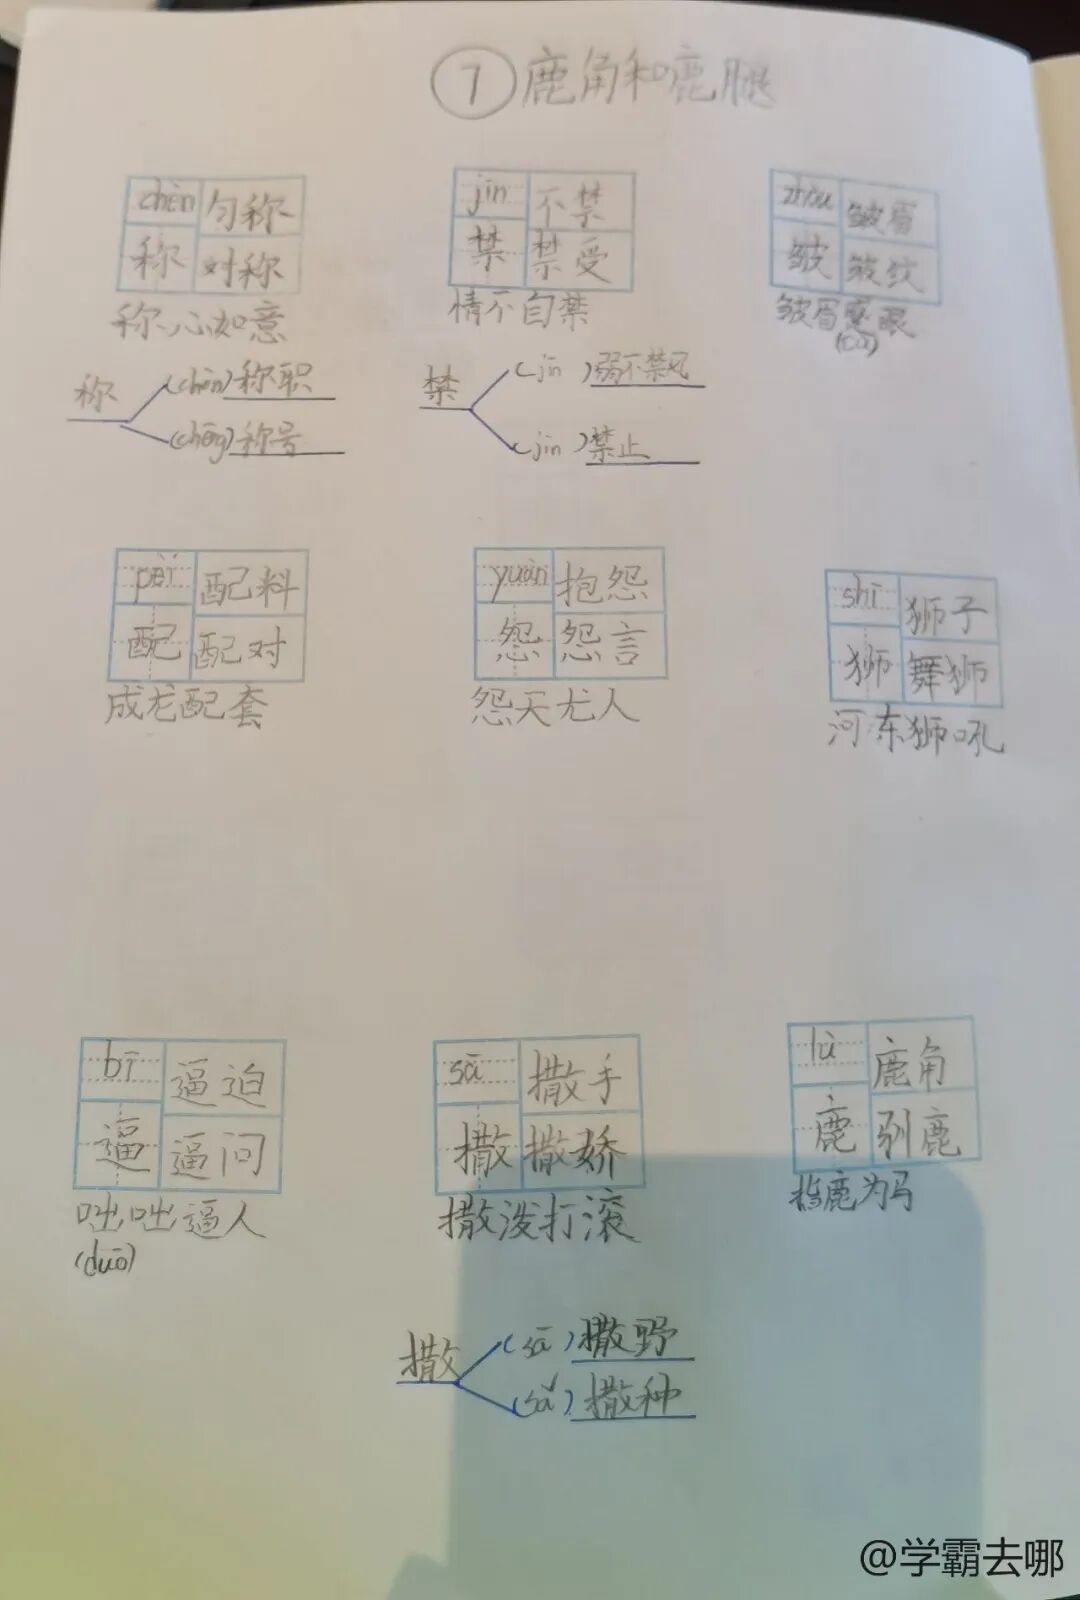 7 鹿角和鹿腿
chèn 匀称
称 对称
称心如意
jīn 不禁
禁 禁受
情不自禁
zhòu 皱眉
皱 皱纹
皱眉蹙眼
(cù)
称 (chèn) 称职
(chēng) 称号
禁 (jīn) 弱不禁风
(jìn) 禁止
pèi 配料
配 配对
成龙配套
yuàn 抱怨
怨 怨言
怨天尤人
shī 狮子
狮 舞狮
河东狮吼
bī 逼迫
逼 逼问
咄咄逼人
(duō)
sā 撒手
撒 撒娇
撒泼打滚
lù 鹿角
鹿 驯鹿
指鹿为马
撒 (sā) 撒野
(sǎ) 撒种
@学霸去哪